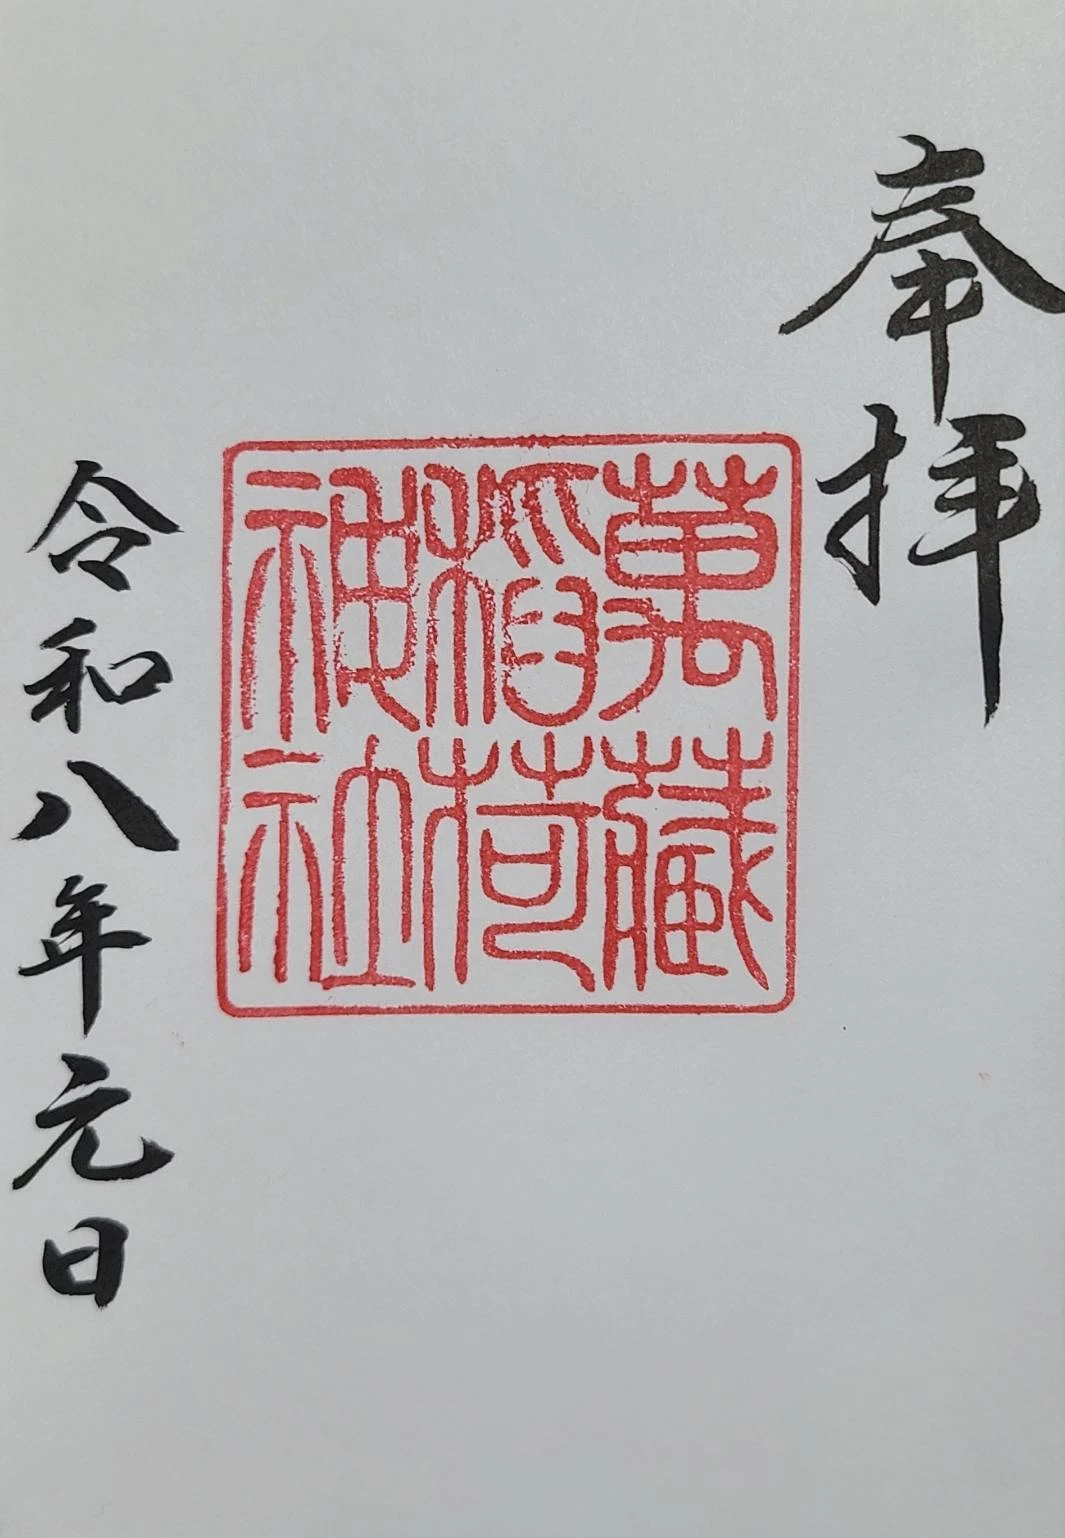 奉拝
萬藏
稲荷
神社
令和八年元日